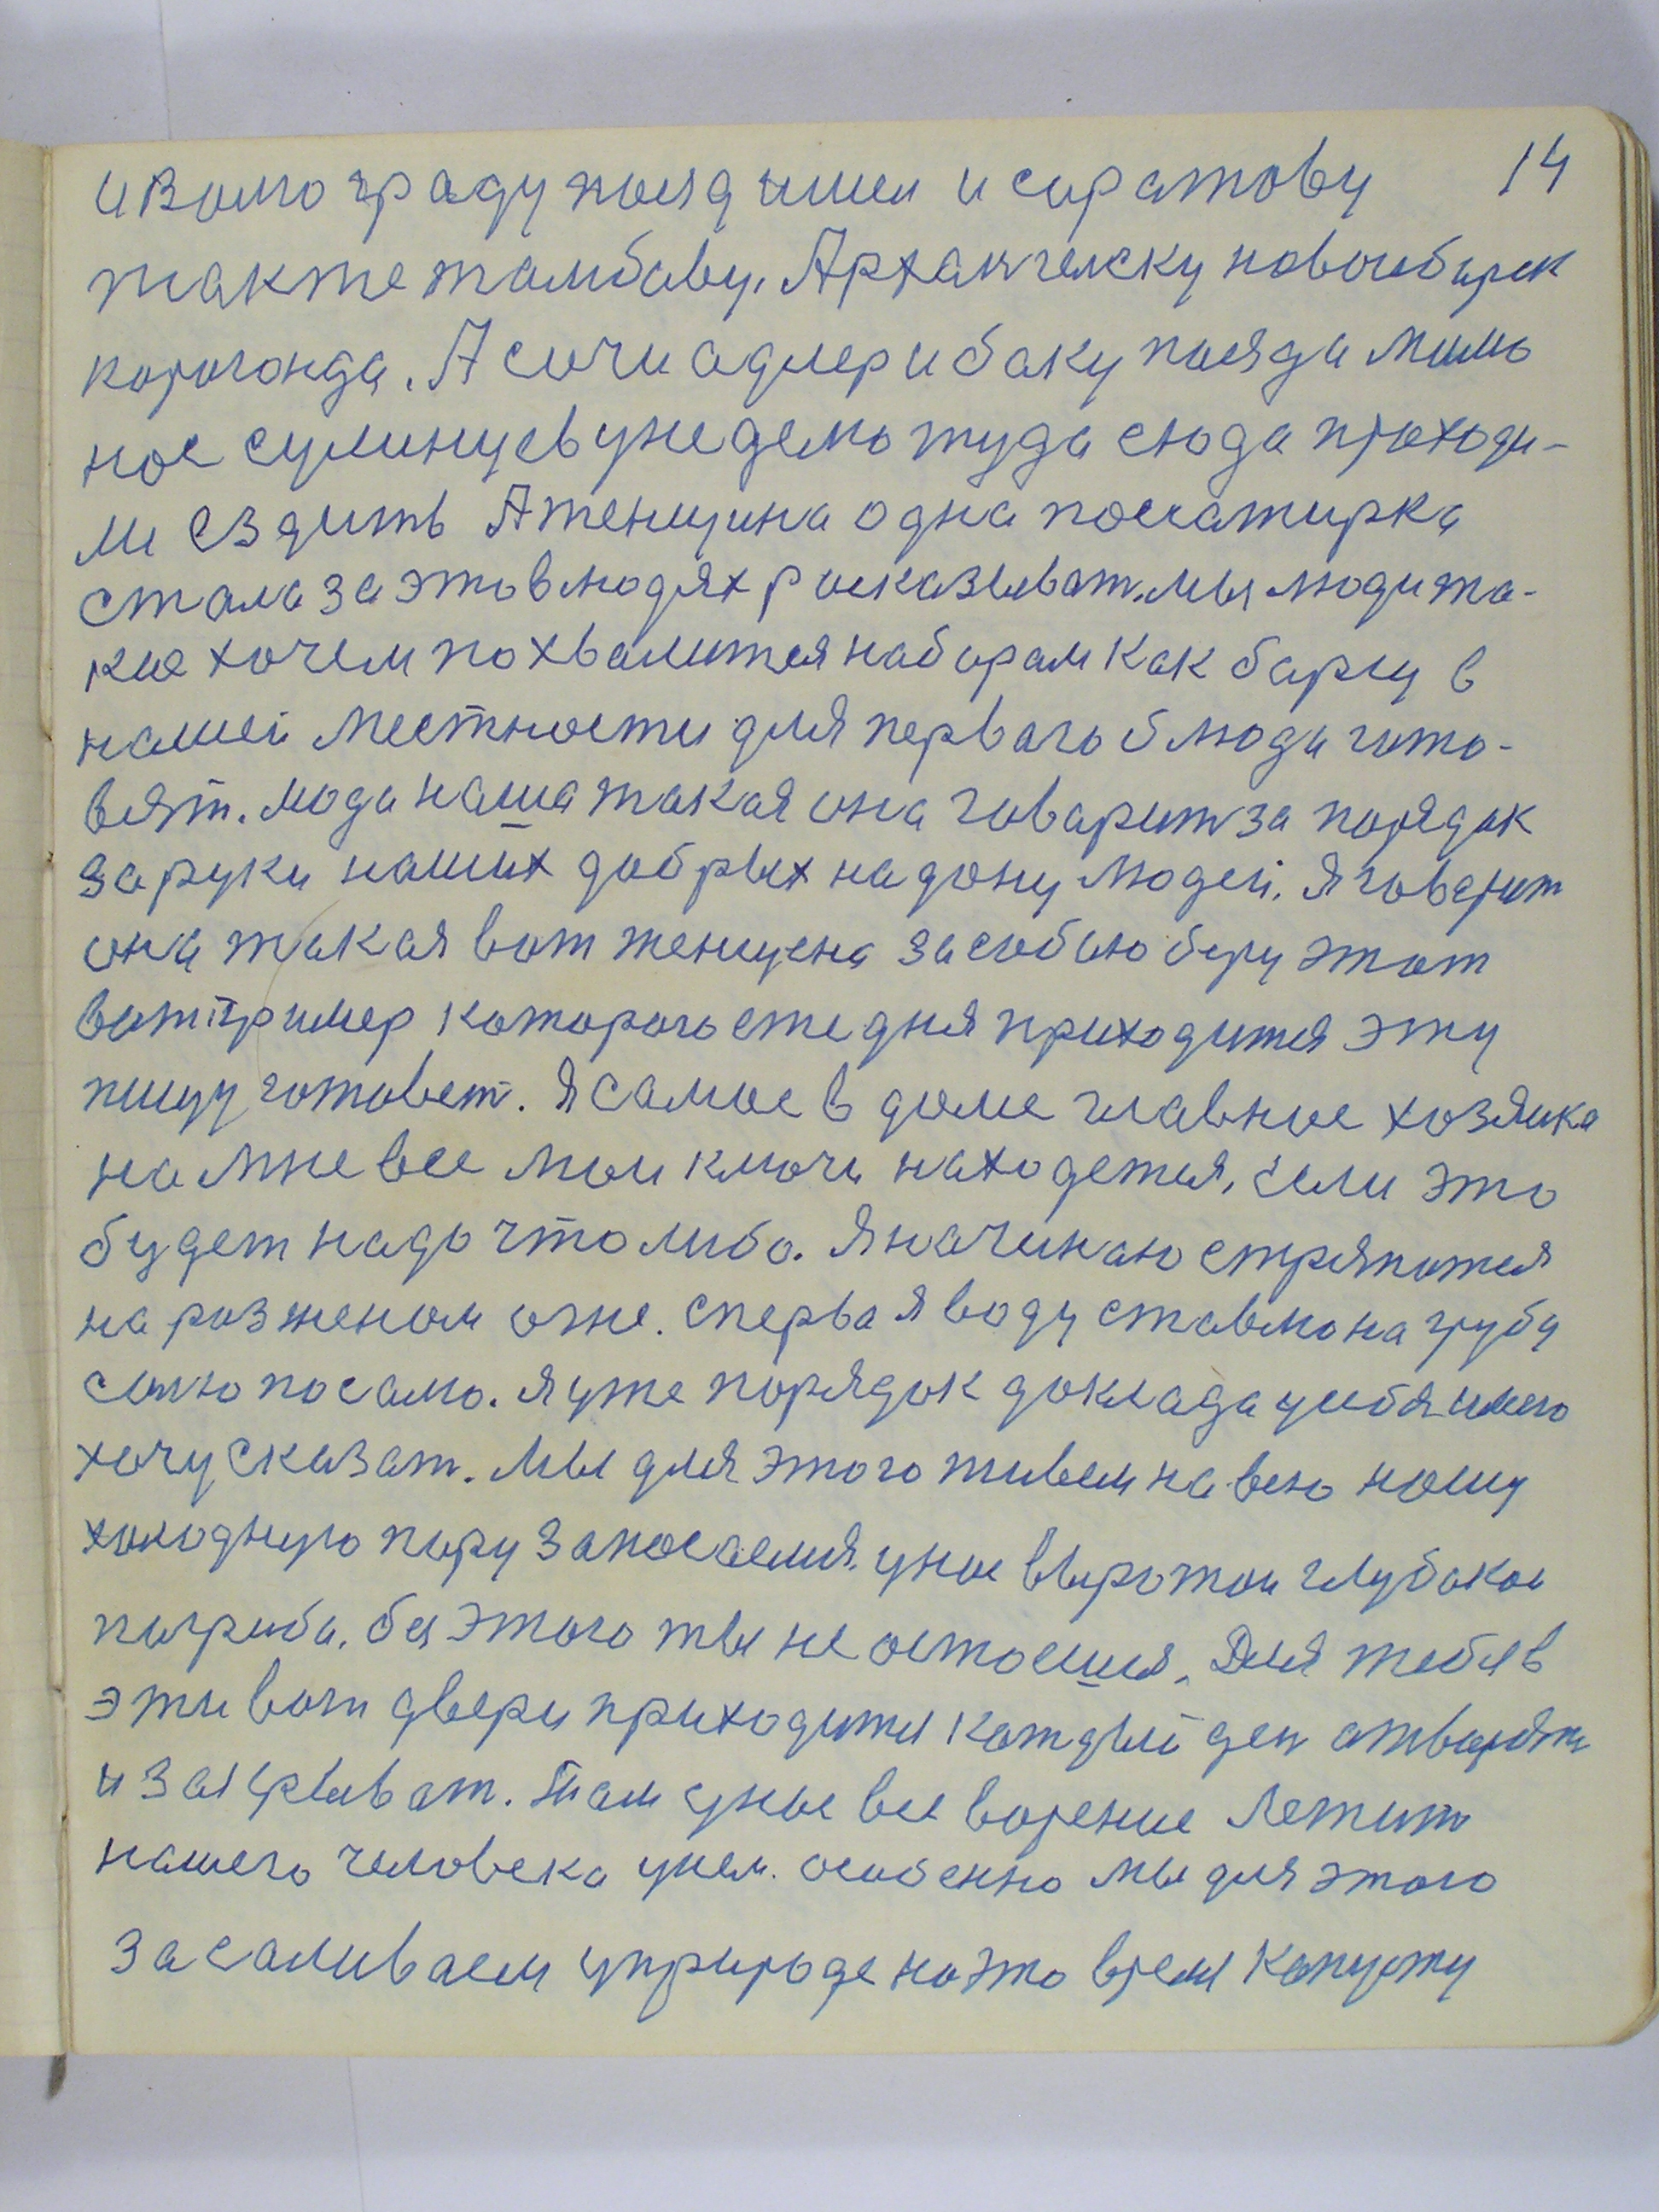 14
и Волгограду поязд имел и саратову
так же тамбову, Архангелску новосибирск
короганда. А сочи адлер и баку поязда мимо
нас сулинцев уже дело туда сюда проходи-
ли ездить А женщина одна пасажирка
стала за это в людях расказыват. мы люди та-
кие хочем похвалится набором как барщ в
нашей местности для первого блюда гото-
вят. мода наша такая она говарит за порядок
за руки наших добрых на дону людей. Я говарит
она такая вот женщена за собою беру этот
вот пример которого еже дня приходится эту
пищу готовет. Я самое в доме главное хозяика
на мне все мои ключи находется, если это
будет надо что либо. Я начинаю стряпатся
на розженом огне. сперва я воду ставлю на грубу
солю посолю. я уже порядок доклада у себя имею
хочу сказат. Мы для этого живем на всю нашу
холодную пору запосаемся. у нас вырытои глубокои
погриба. без этого ты не остоешся. Для тебя в
эти вот двери приходится каждый ден отворят
и закрыват. Там у нас все варение лежит
нашего человека учем. особенно мы для этого
засаливаем у природе на это время капусту